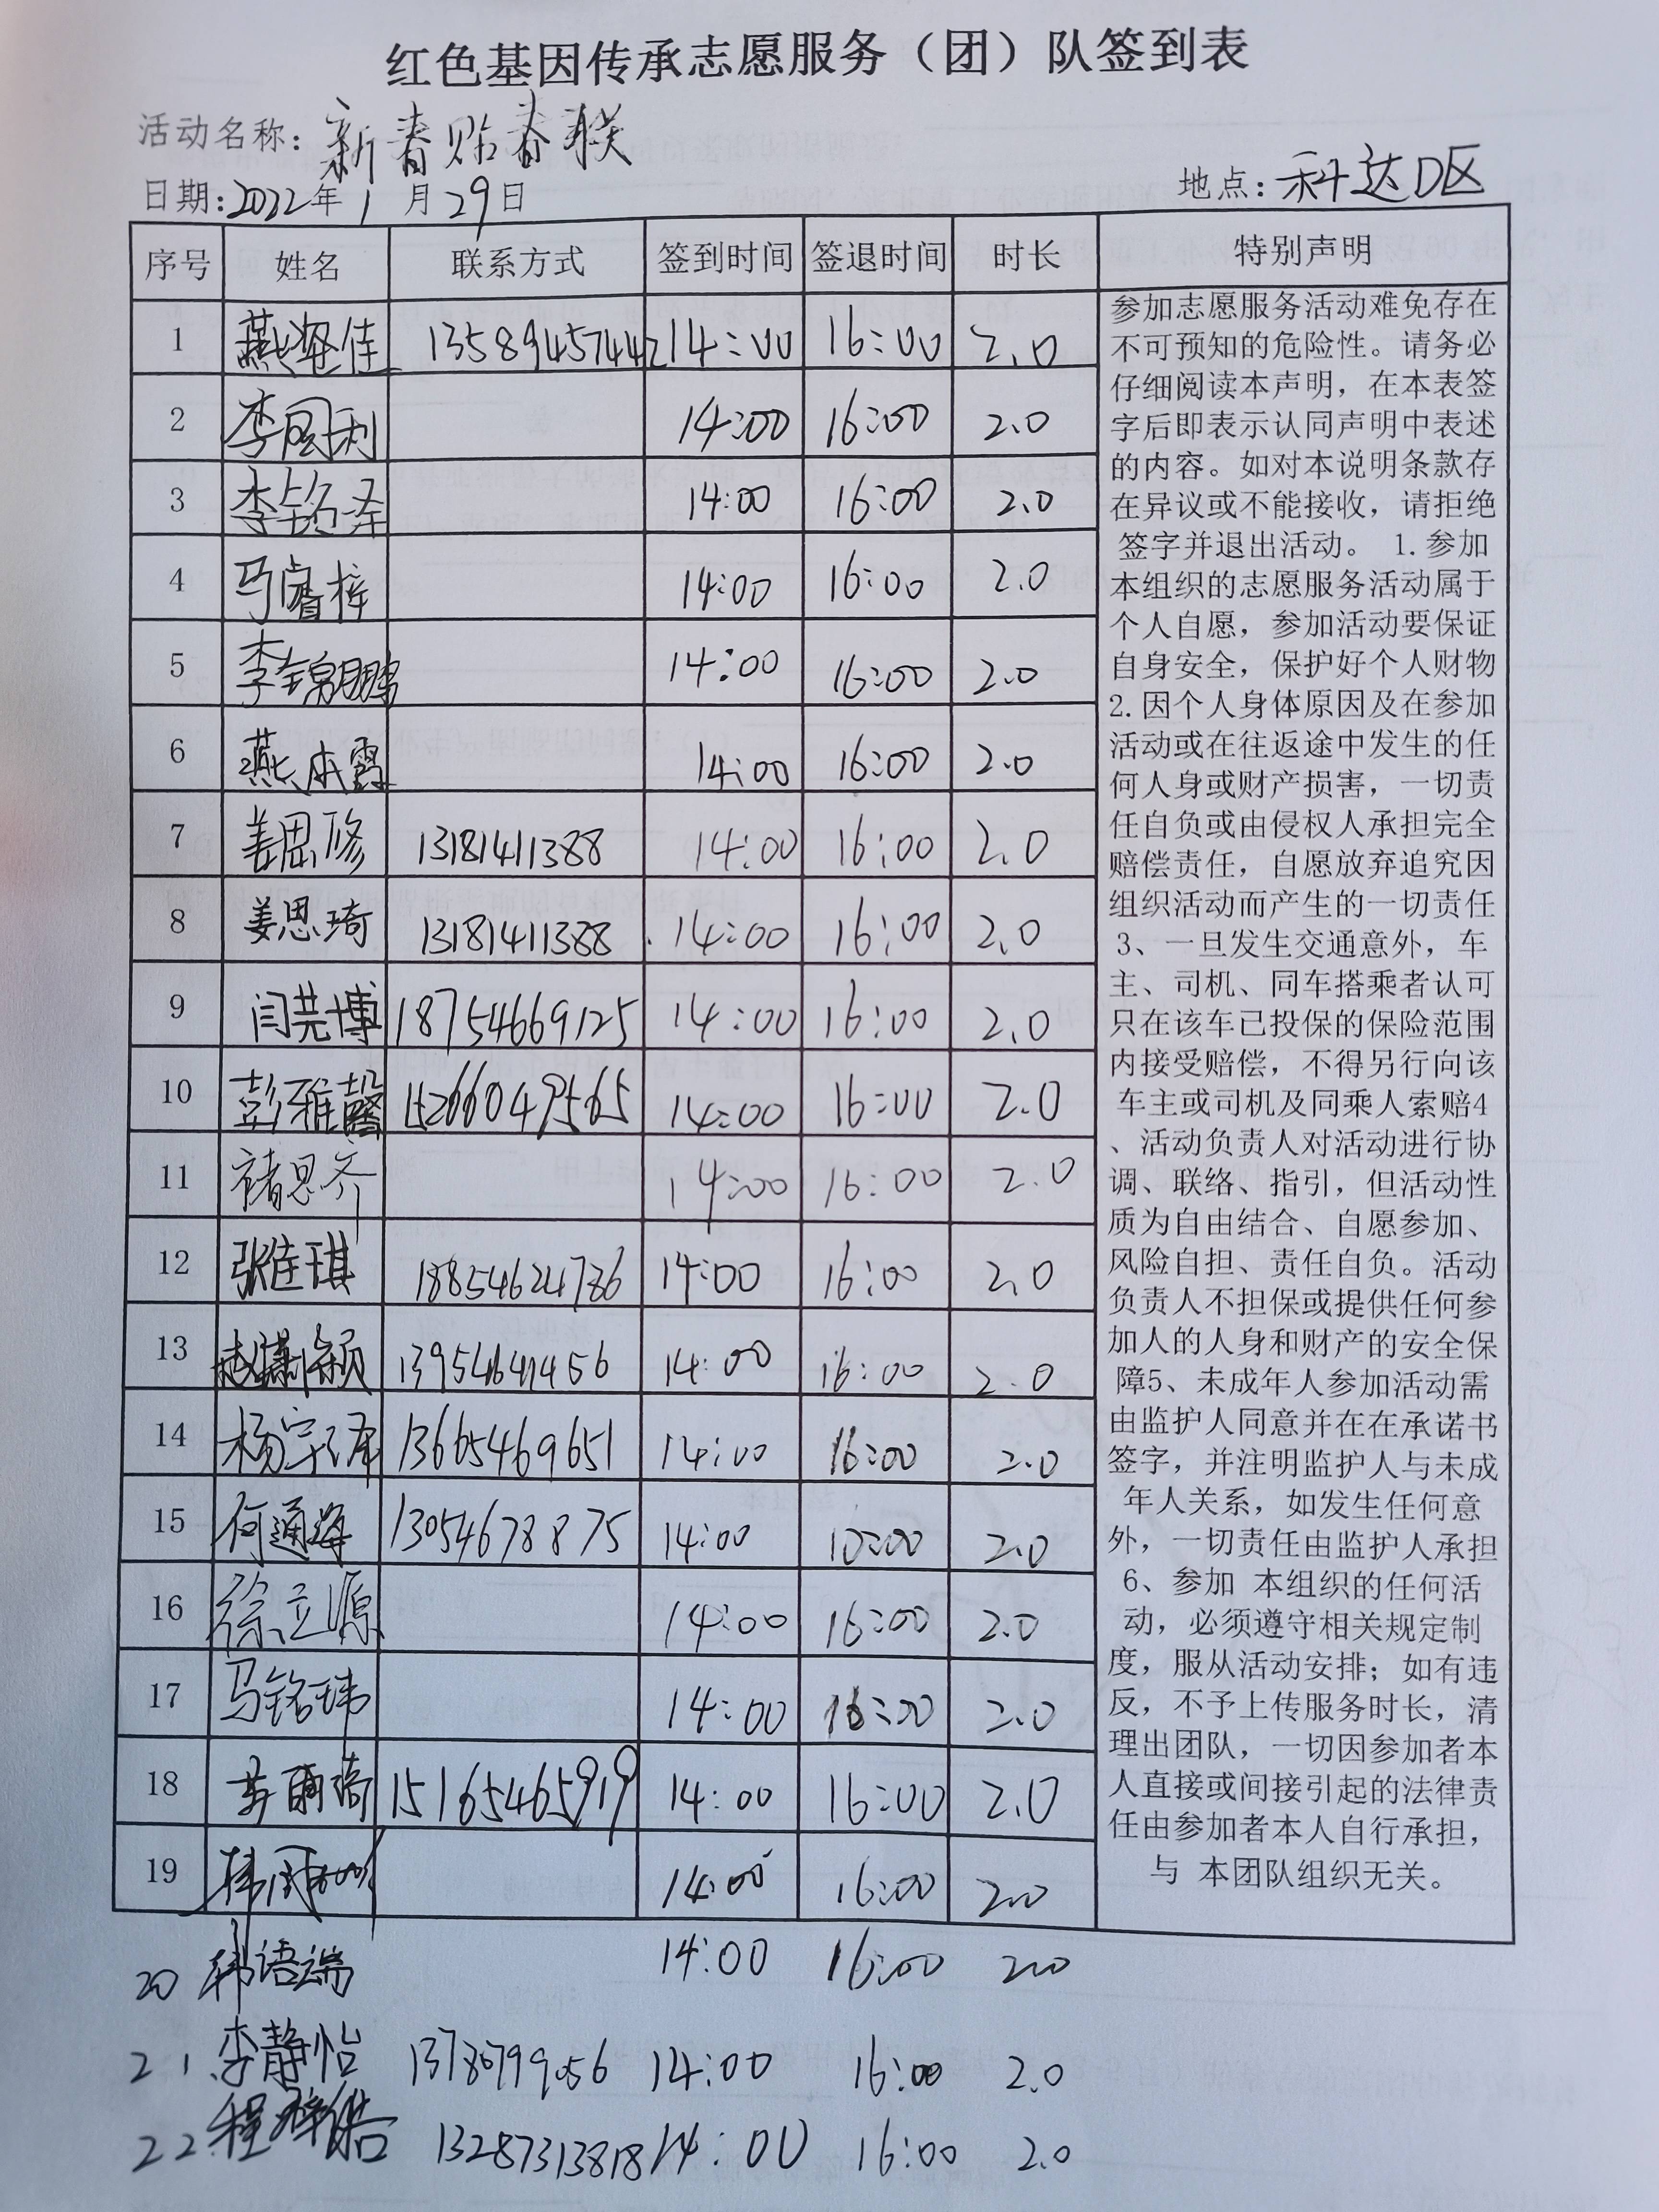 红色基因传承志愿服务（团）队签到表
活动名称：新春贴春联
日期：2022年1月29日 地点：科达D区
序号 姓名 联系方式 签到时间 签退时间 时长 特别声明
1 燕姿佳 13589457442 14:00 16:00 2.0
2 李国利 14:00 16:00 2.0
3 李铭泽 14:00 16:00 2.0
4 马睿梓 14:00 16:00 2.0
5 李锦鹏 14:00 16:00 2.0
6 燕本霞 14:00 16:00 2.0
7 姜思修 13181411388 14:00 16:00 2.0
8 姜思琦 13181411388 14:00 16:00 2.0
9 闫芫博 18754669125 14:00 16:00 2.0
10 彭雅馨 15266049565 14:00 16:00 2.0
11 褚思齐 14:00 16:00 2.0
12 张佳琪 18854624786 14:00 16:00 2.0
13 赵 颖 14:00 16:00 2.0
14 杨宇泽 13665469651 14:00 16:00 2.0
15 何通海 13054678875 14:00 10:00 2.0
16 徐立源 14:00 16:00 2.0
17 马铭玮 14:00 16:00 2.0
18 雨 15165465919 14:00 16:00 2.0
19 韩 14:00 16:00 2.0
20 韩语端 14:00 16:00 2.0
21 李静怡 13780799056 14:00 16:00 2.0
22 程 13287313818 14:00 16:00 2.0
参加志愿服务活动难免存在
不可预知的危险性。请务必
仔细阅读本声明，在本表签
字后即表示认同声明中表述
的内容。如对本说明条款存
在异议或不能接收，请拒绝
签字并退出活动。 1.参加
本组织的志愿服务活动属于
个人自愿，参加活动要保证
自身安全，保护好个人财物
2.因个人身体原因及在参加
活动或在往返途中发生的任
何人身或财产损害，一切责
任自负或由侵权人承担完全
赔偿责任，自愿放弃追究因
组织活动而产生的一切责任
3、一旦发生交通意外，车
主、司机、同车搭乘者认可
只在该车已投保的保险范围
内接受赔偿，不得另行向该
车主或司机及同乘人索赔4
、活动负责人对活动进行协
调、联络、指引，但活动性
质为自由结合、自愿参加、
风险自担、责任自负。活动
负责人不担保或提供任何参
加人的人身和财产的安全保
障5、未成年人参加活动需
由监护人同意并在在承诺书
签字，并注明监护人与未成
年人关系，如发生任何意
外，一切责任由监护人承担
6、参加 本组织的任何活
动，必须遵守相关规定制
度，服从活动安排；如有违
反，不予上传服务时长，清
理出团队，一切因参加者本
人直接或间接引起的法律责
任由参加者本人自行承担，
与 本团队组织无关。